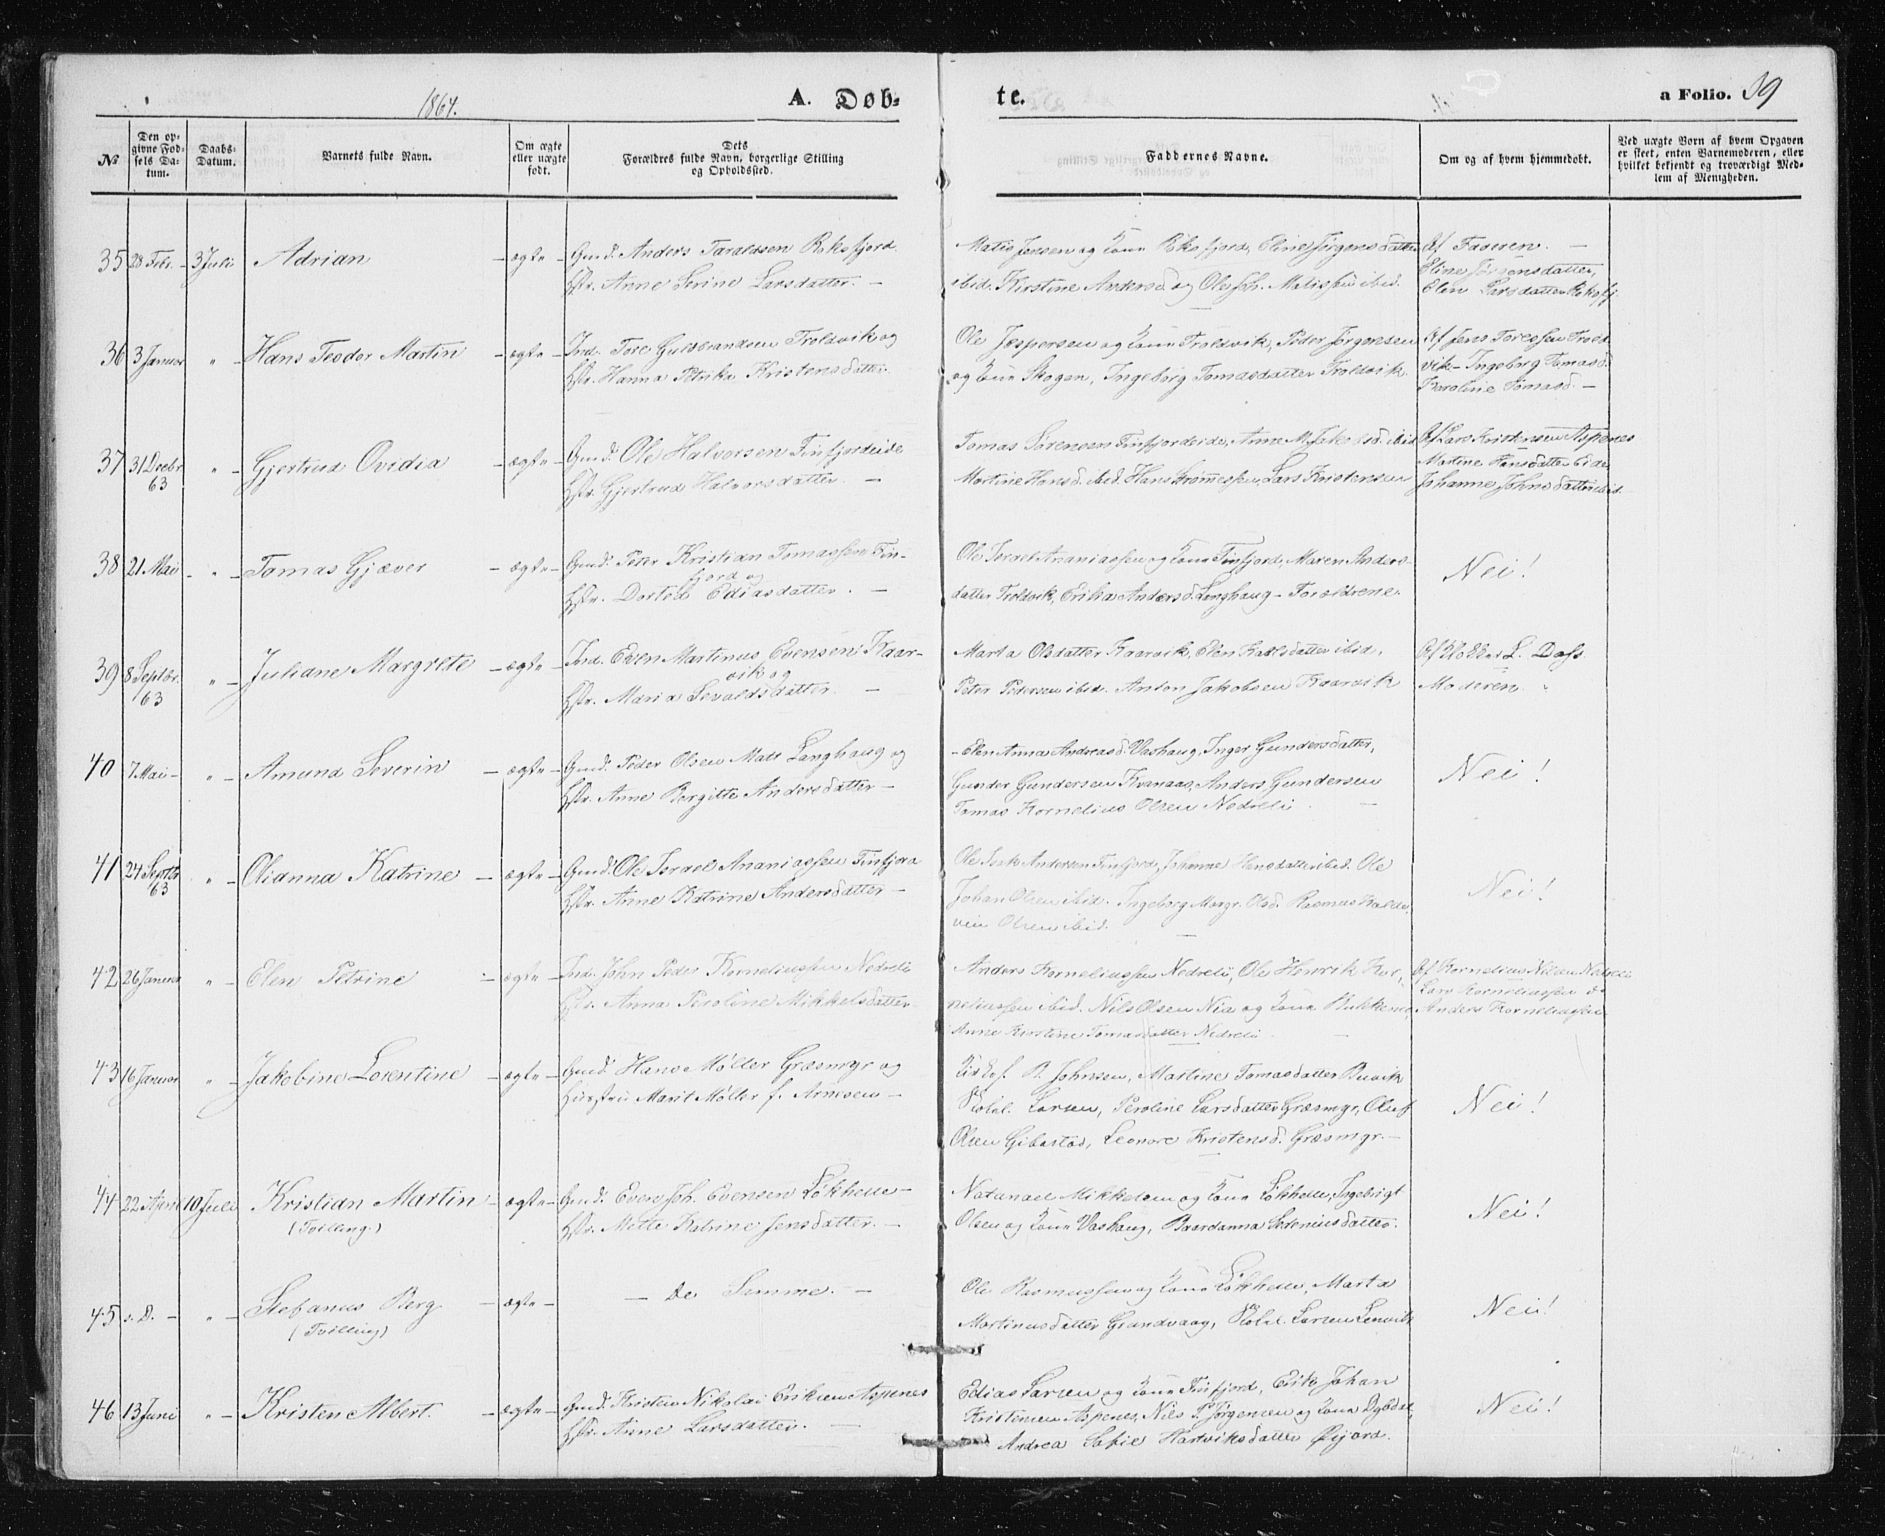 1864.
A. Døb-
te.
a Folio. 39
No
Den op-
givne Fød-
sels Da-
tum.
Daabs-
Datum.
Barnets fulde Navn.
Om ægte
eller uægte
født.
Dets
Forældres fulde Navn, borgerlige Stilling
og Opholdssted.
Faddernes Navne.
Om og af hvem hjemmedøbt.
Ved uægte Børn af hvem Opgaven
er skeet, enten Barnemoderen, eller
hvilket bekjendt og troværdigt Med-
lem af Menigheden.
35 28 Febr. 3 Juli Adrian - ægte - Gmd. Anders Taraldsen Roksfjord
Hstr. Anne Serine Larsdatter. -
Matis Jensen og Kone Roksfjord, Eline Jørgensdatter
ibid. Kirstine Andersd og Ole Joh. Matissen ibid.
Af Faderen. -
Eline Jørgensdatter,
Elen Larsdatter Roksfj.
36 3 Januar " - Hans Teodor Martin - ægte - Ind. Tore Gulbrandsen Troldvik og
Hstr. Hanna Petrike Kristensdatter.
Ole Jespersen og Kone Troldvik, Peder Jørgensen
og Kone Skogen, Ingeborg Tomasdatter Troldvik.
Af Jens Toressen Trold
vik - Ingeborg Tomasd.
Karoline Tomasd. -
37 31 Decbr 63 " - Gjertrud Ovidia - ægte - Gmd. Ole Halvorsen Finfjordeide
Hstr. Gjertrud Halvorsdatter. -
Tomas Sørensen Finfjordeide, Anne M. Jakobsd. ibid
Martine Hansd. ibid. Hans Lars Kristensen
Af Lars Kristensen Aspenes
Martine Hansdatter Eide
Johanne Johnsdatter ibid.
38 21 Mai - " - Tomas Gjæver - ægte - Gmd. Peter Kristian Tomassen Fin-
fjord og
Hstr. Dortea Ediasdatter. -
Ole Israel Ananiassen og Kone Finfjord, Maren Anders-
datter Troldvik, Erika Andersd. Langhaug - Forældrene.
Nei!
39 8 Septbr. 63 " - Juliane Margrete - ægte - Ind. Even Martinus Evensen Kaar-
vik og
Hstr. Maria Sevaldsdatter. -
Marta Olsdatter Kaarvik, Elen Karlsdatter ibid.
Peter Pedersen ibid. Anton Jakobsen Kaarvik
Af Klokker L. Dass
Moderen. "
40 7 Mai - " - Amund Severin - ægte - Gmd. Peder Olsen Mats Langhaug og
Hstr. Anne Bergitte Andersdatter -
- Elen Anna Andreasd. Vashaug, Inger Gundersdatter,
Gunder Gundersen Kvanaas, Anders Gundersen
Tomas Kornelius Olsen Nedreli. -
Nei!
41 24 Septbr 63 " - Olianna Katrine - ægte - Gmd. Ole Israel Ananiassen Finfjord
Hstr. Anne Katrine Andersdatter -
Ole Andersen Finfjord, Johanne Hansdatter ibid. Ole
Johan Olsen ibid. Ingeborg Margr. Olsd. Rasmus
Olsen ibid. -
Nei!
42 26 Januar " - Elen Petrine - ægte - Ind. John Peder Korneliussen Nedreli
Hstr. Anna Peroline Mikkelsdatter
Anders Korneliussen Nedreli, Ole Henrik Kor-
neliussen ibid. Nils Olsen og Kone
Anne Kirstine Tomasdatter Nedreli -
Af Kornelius Nilsen Nedreli
Lars Korneliussen do
Anders Korneliussen
43 16 Januar " - Jakobine Lorentine - ægte - Gmd. Hans Møller Græsmyr og
Hustru Marit Møller f. Arnesen -
P. Johnsen, Martine Tomasdatter Buvik
Larsen, Peroline Larsdatter Græsmyr, Oluf
Olsen Gibostad, Leonore Kristensd. Græsmyr. -
Nei!
44 22 April 10 Juli Kristian Martin - ægte - Gmd. Even Joh. Evensen Løkhelle -
(Tvilling.)
Hstr. Mette Katrine Jensdatter. -
Natanael Mikkelsen og Kone Løkhelle, Ingebrigt
Olsen og Kone Vashaug, Baardanna Sereniusdatter.
Nei!
45 s. D. - " - Stefanus Berg - ægte - - De Samme. -
(Tvilling)
Ole Rasmussen og Kone Løkhelle, Marta
Martinusdatter Grandvaag, Larsen Lenvik
Nei!
46 13 Juni " - Kristen Albert. - ægte - Gmd. Kristen Nikolai Eriksen Aspenes
Hstr. Anne Larsdatter. -
Edias Larsen og Kone Finfjord, Erik Johan
Kristensen Aspenes, Nils P. Jørgensen og Kone
Andrea Sofie Hartviksdatter Øijord.
Nei!